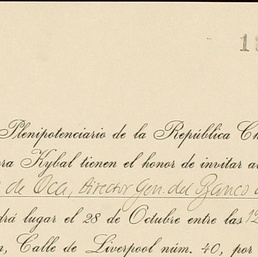 Plenipotenciario de la República Ch
ra Kybal tienen el honor de invitar a
de Oca, Director Gen. del Banco
drá lugar el 28 de Octubre entre las 12
n, Calle de Liverpool núm. 40, por